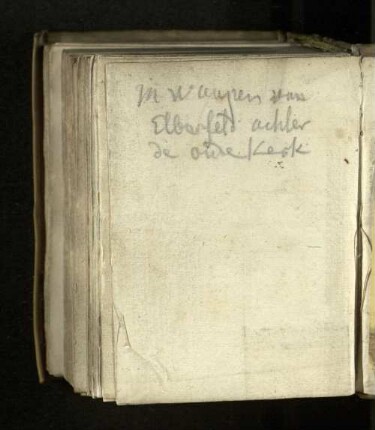 in 't wapen van
Elberfeld achter
de oude Kerk